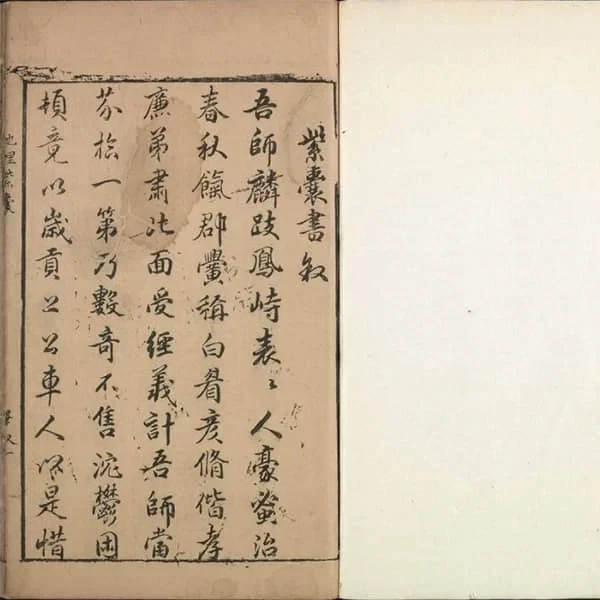 紫囊書叙
吾師麟趾鳳峙表〻人豪蚤治
春秋餼郡黌稱白眉彥脩偕孝
廉弟肅北面受經義計吾師當
芥拾一第乃數竒不售沱鬱困
頓竟以歲貢上公車人以是惜
地理紫囊